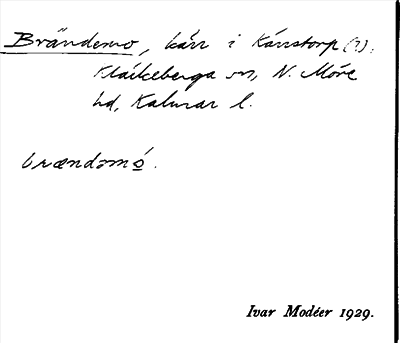 Brändemo, kärr i Kårstorp (?),
Kläckeberga sn, N. Möre
hd, Kalmar l.
brændomó.
Ivar Modéer 1929.